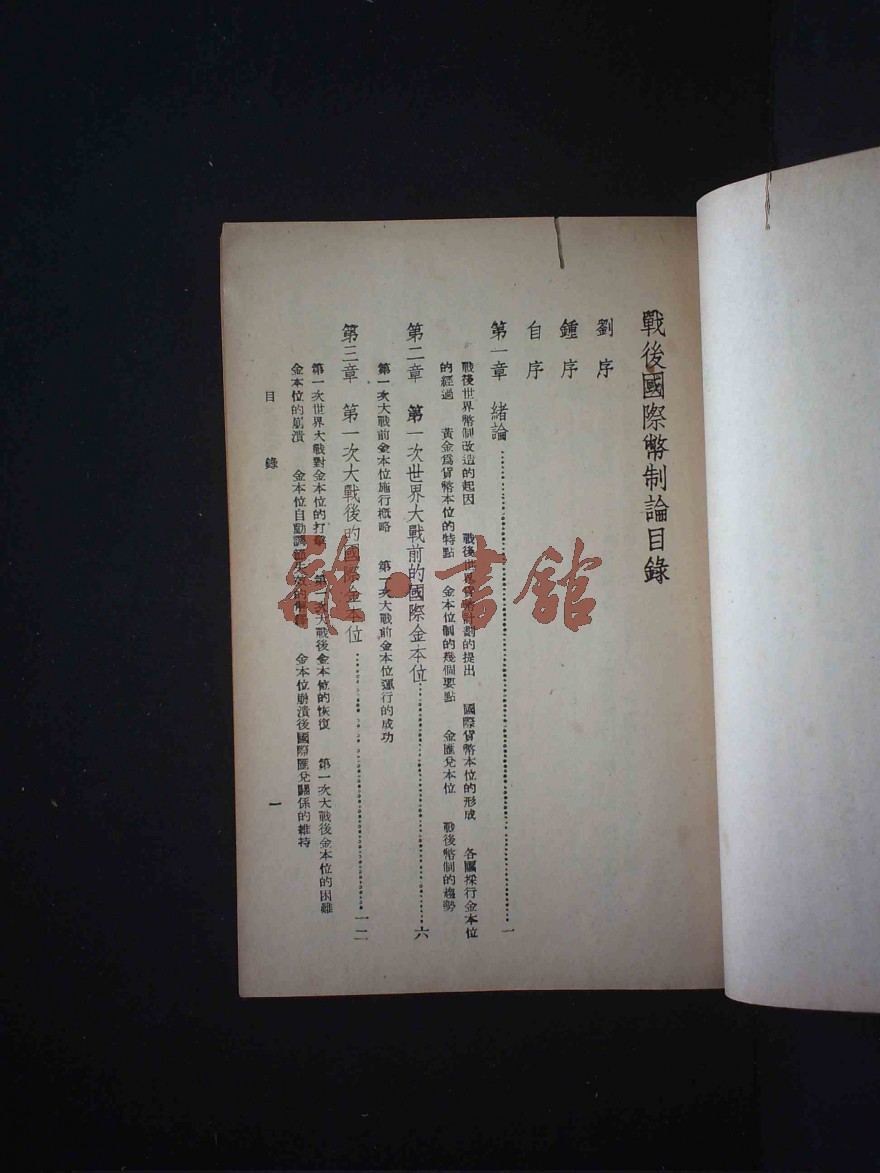 戰後國際幣制論目錄
劉序
鍾序
自序
第一章 緒論……一
戰後世界幣制改造的起因 戰後世界貨幣計劃的提出 國際貨幣本位的形成 各國採行金本位
的經過 黃金爲貨幣本位的特點 金本位制的幾個要點 金匯兌本位 戰後幣制的趨勢
第二章 第一次世界大戰前的國際金本位……六
第一次大戰前金本位施行概略 第一次大戰前金本位運行的成功
第三章 第一次大戰後的國際金本位……一二
第一次世界大戰對金本位的打擊 第一次大戰後金本位的恢復 第一次大戰後金本位的困難
金本位的崩潰 金本位自動調節失效的 金本位崩潰後國際匯兌關係的維持
目錄 一
雜·書館